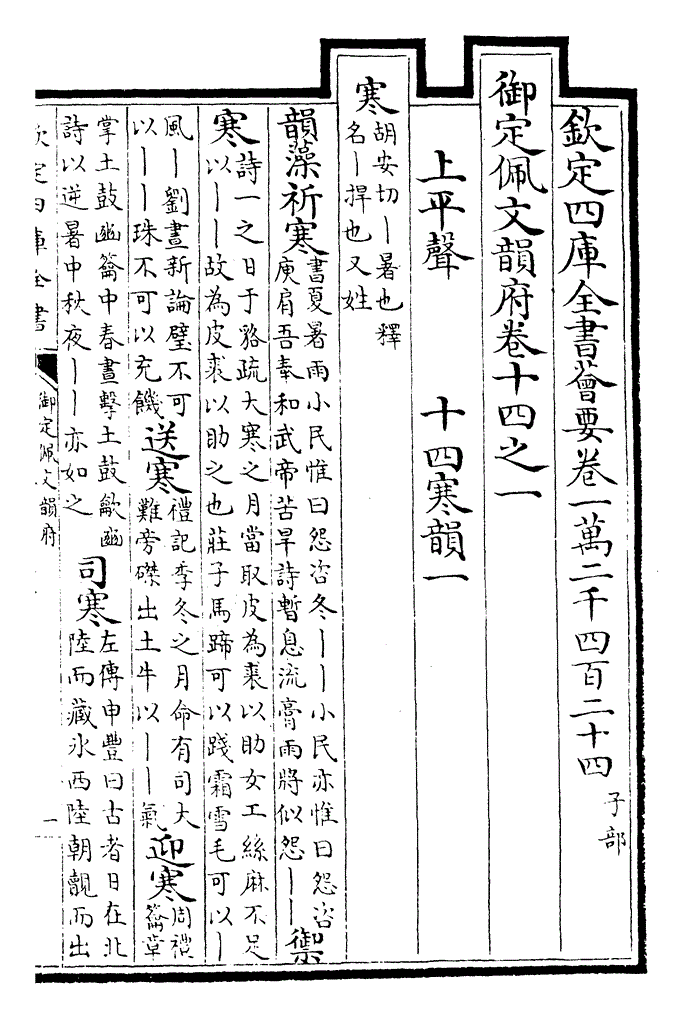 欽定四庫全書薈要卷一萬二千四百二十四子部
御定佩文韻府卷十四之一
上平聲 十四寒韻一
寒胡安切丨暑也釋
名丨捍也又姓
韻藻祈寒書夏暑雨小民惟曰怨咨冬丨丨小民亦惟曰怨咨
庾肩吾奉和武帝苦旱詩暫息流膏雨將似怨丨丨禦
寒詩一之日于貉疏大寒之月當取皮為裘以助女工絲麻不足
以丨丨故為皮裘以助之也莊子馬蹄可以踐霜雪毛可以丨
風丨劉晝新論璧不可
以丨丨珠不可以充饑送寒禮記季冬之月命有司大
難旁磔出土牛以丨丨氣迎寒周禮
籥章
掌土鼓豳籥中春晝擊土鼓龡豳
詩以逆暑中秋夜丨丨亦如之司寒左傳申豐曰古者日在北
陸而藏冰西陸朝覿而出
欽定四庫全書
御定佩文韻府
一